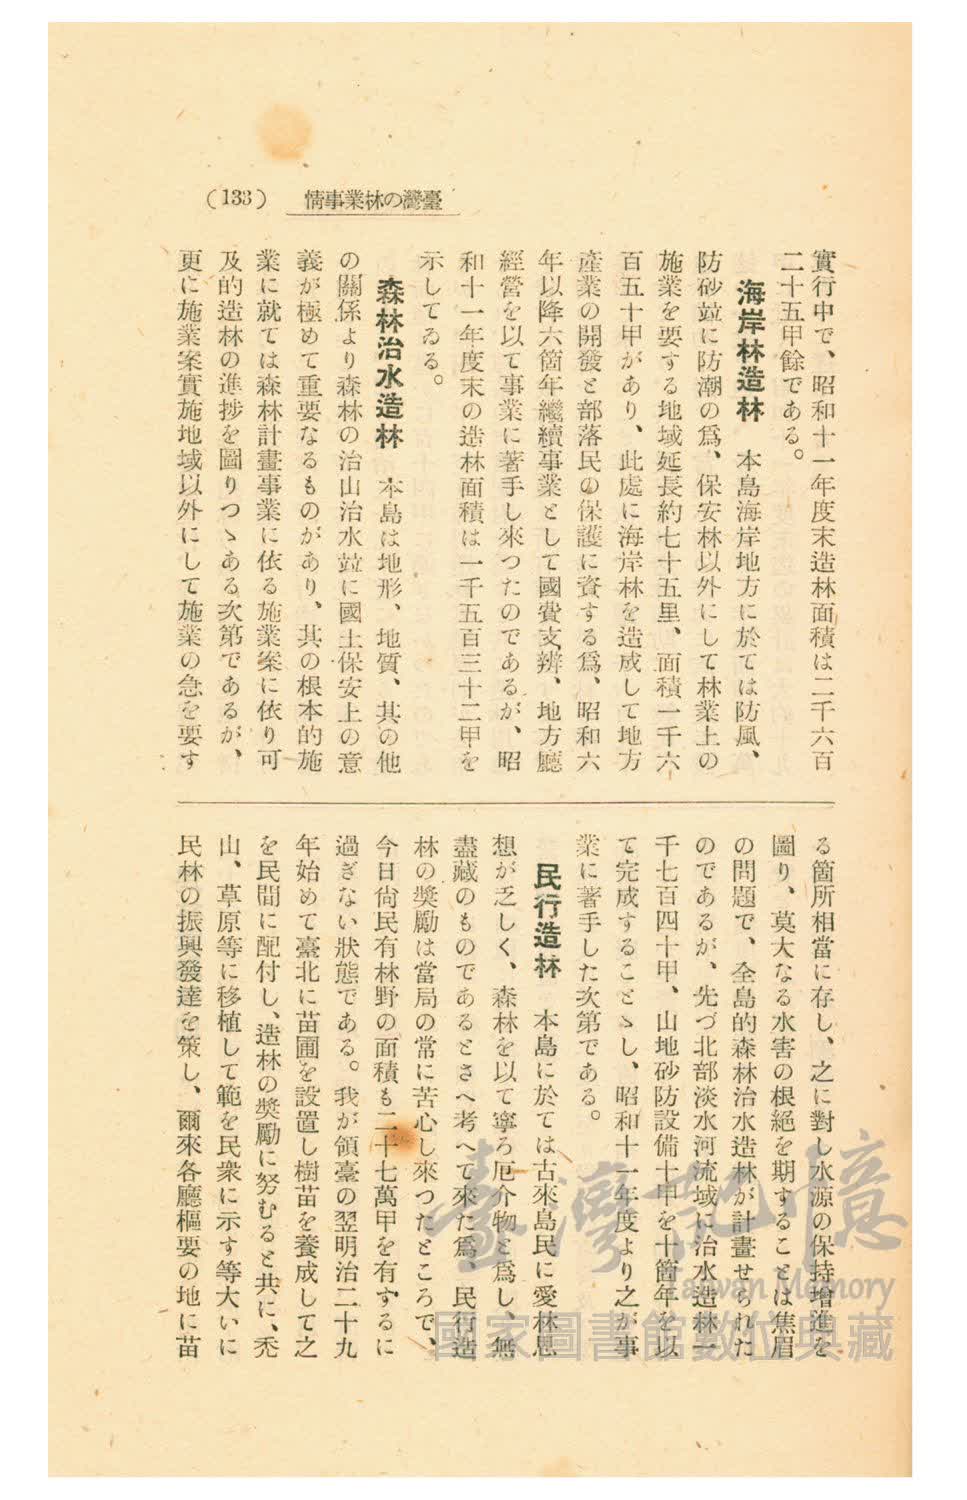 (133) 臺灣の林業事情
實行中で、昭和十一年度末造林面積は二千六百
二十五甲餘である。
海岸林造林　本島海岸地方に於ては防風、
防砂竝に防潮の爲、保安林以外にして林業上の
施業を要する地域延長約七十五里、面積一千六
百五十甲があり、此處に海岸林を造成して地方
產業の開發と部落民の保護に資する爲、昭和六
年以降六箇年繼續事業として國費支辨、地方廳
經營を以て事業に著手し來つたのであるが、昭
和十一年度末の造林面積は一千五百三十二甲を
示してゐる。
森林治水造林　本島は地形、地質、其の他
の關係より森林の治山治水竝に國土保安上の意
義が極めて重要なるものがあり、其の根本的施
業に就ては森林計畫事業に依る施業案に依り可
及的造林の進捗を圖りつゝある次第であるが、
更に施業案實施地域以外にして施業の急を要す
る箇所相當に存し、之に對し水源の保持增進を
圖り、莫大なる水害の根絕を期することは焦眉
の問題で、全島的森林治水造林が計畫せられた
のであるが、先づ北部淡水河流域に治水造林一
千七百四十甲、山地砂防設備十甲を十箇年を以
て完成することゝし、昭和十一年度より之が事
業に著手した次第である。
民行造林　本島に於ては古來島民に愛林思
想が乏しく、森林を以て寧ろ厄介物と爲し、無
盡藏のものであるとさへ考へて來た爲、民行造
林の奬勵は當局の常に苦心し來つたところで、
今日尙民有林野の面積も二十七萬甲を有するに
過ぎない狀態である。我が領臺の翌明治二十九
年始めて臺北に苗圃を設置し樹苗を養成して之
を民間に配付し、造林の奬勵に努むると共に、禿
山、草原等に移植して範を民衆に示す等大いに
民林の振興發達を策し、爾來各廳樞要の地に苗
臺灣記憶
Taiwan Memory
國家圖書館數位典藏